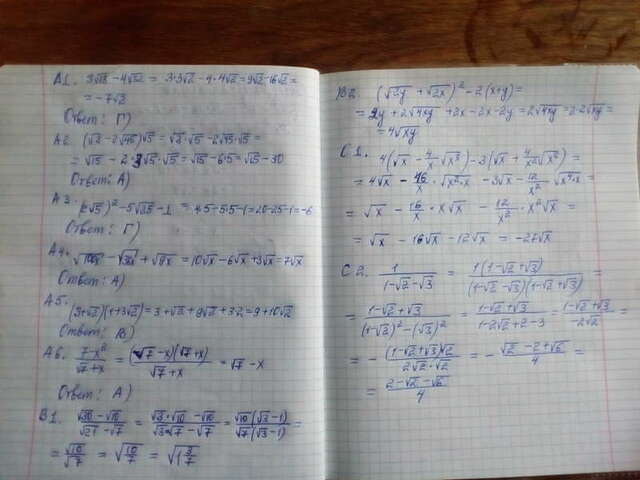 А1. 3√18 - 4√32 = 3·3√2 - 4·4√2 = 9√2 - 16√2 =
= -7√2
Ответ: Г)
А2. (√3 - 2√45)√5 = √3·√5 - 2√45·√5 =
= √15 - 2·3√5·√5 = √15 - 6·5 = √15 - 30
Ответ: А)
А3. (2√5)² - 5√25 - 1 = 4·5 - 5·5 - 1 = 20 - 25 - 1 = -6
Ответ: Г)
А4. √100x - √36x + √9x = 10√x - 6√x + 3√x = 7√x
Ответ: А)
А5. (3+√2)(1+3√2) = 3 + √2 + 9√2 + 3·2 = 9 + 10√2
Ответ: В)
А6. (7-x²)/(√7+x) = ((√7-x)(√7+x))/(√7+x) = √7 - x
Ответ: А)
В1. (√30-√10)/(√21-√7) = (√3·√10-√10)/(√3·√7-√7) = (√10(√3-1))/(√7(√3-1)) =
= √10/√7 = √(10/7) = √(1 3/7)
В2. (√2y + √2x)² - 2(x+y) =
= 2y + 2√4xy + 2x - 2x - 2y = 2√4xy = 2·2√xy =
= 4√xy
С1. 4(√x - 4/x √x³) - 3(√x + 4/x² √x⁵) =
= 4√x - 16/x · √x²·x - 3√x - 12/x² · √x⁴·x =
= √x - 16/x · x√x - 12/x² · x²√x =
= √x - 16√x - 12√x = -27√x
С2. 1/(1-√2-√3) = (1(1-√2+√3))/((1-√2-√3)(1-√2+√3)) =
= (1-√2+√3)/((1-√2)²-(√3)²) = (1-√2+√3)/(1-2√2+2-3) = (1-√2+√3)/(-2√2) =
= - ((1-√2+√3)√2)/(2√2·√2) = - (√2-2+√6)/4 =
= (2-√2-√6)/4